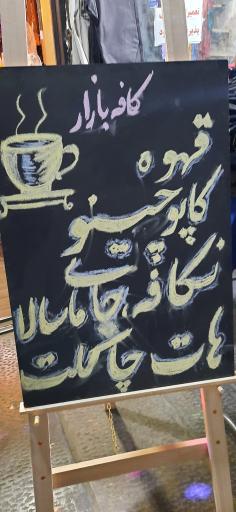 تعمیر
کافه بازار
قهوه
کاپوچینو
نسکافه چای ماسالا
هات چاکلت